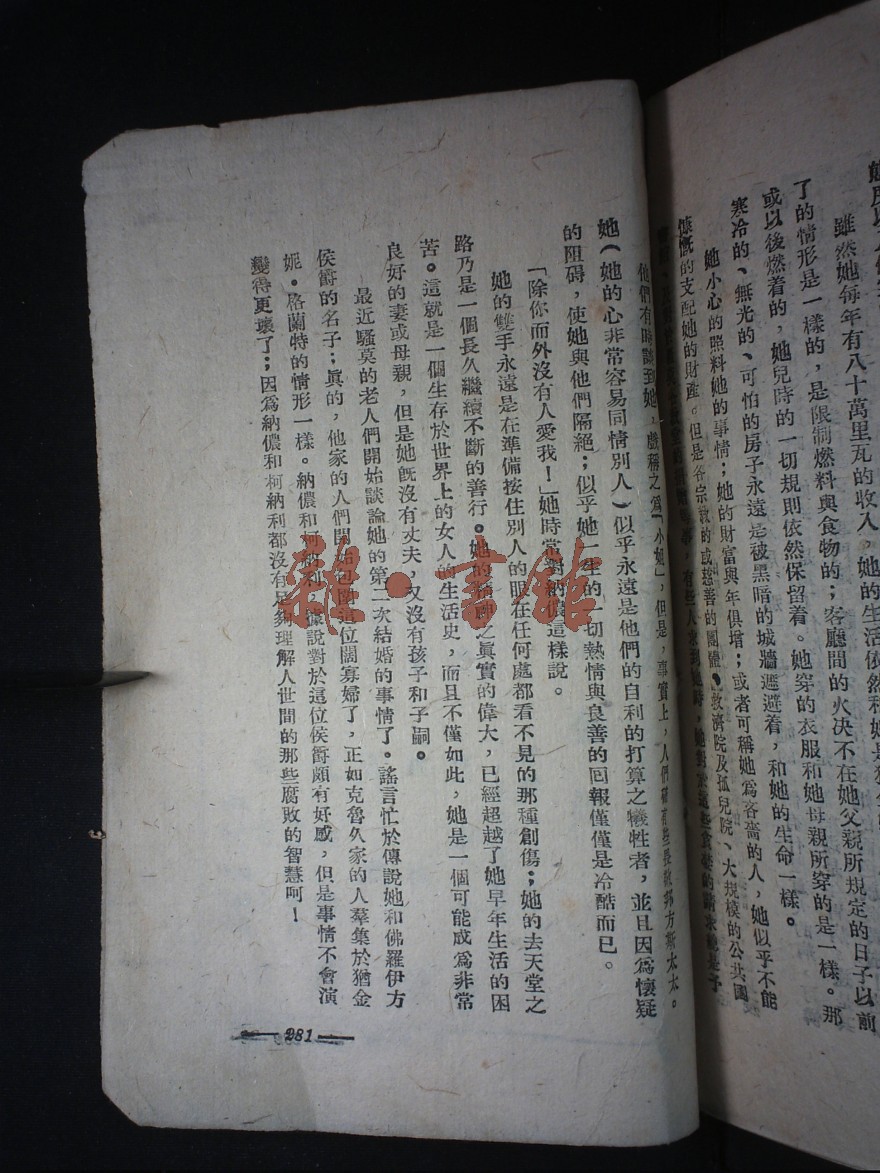 雖然她每年有八十萬里瓦的收入，她的生活依然和
了的情形是一樣的，是限制燃料與食物的；客廳間的火决不在她父親所規定的日子以前
或以後燃着的，她兒時的一切規則依然保留着。她穿的衣服和她母親所穿的是一樣。那
寒冷的、無光的、可怕的房子永遠是被黑暗的城牆遮避着，和她的生命一樣。
她小心的照料她的事情；她的財富與年俱增；或者可稱她爲吝嗇的人，她似乎不能
慷慨的支配她的財產。但是各宗敎的或慈善的團體、救濟院及孤兒院、大規模的公共圖
他們有時談到她，戲稱之爲「小姐」，但是，事實上，人們稱
邦方斯太太。
她（她的心非常容易同情別人）似乎永遠是他們的自利的打算之犧牲者，並且因爲懷疑
的阻碍，使她與他們隔絕；似乎她一生的一切熱情與良善的回報僅僅是冷酷而已。
「除你而外沒有人愛我！」她時常對納儂這樣說。
她的雙手永遠是在準備按住別人的眼在任何處都看不見的那種創傷；她的去天堂之
路乃是一個長久繼續不斷的善行。她的精神之眞實的偉大，已經超越了她早年生活的困
苦。這就是一個生存於世界上的女人的生活史，而且不僅如此，她是一個可能成爲非常
良好的妻或母親，但是她旣沒有丈夫，又沒有孩子和子嗣。
最近騷莫的老人們開始談論她的第二次結婚的事情了。謠言忙於傳說她和佛羅伊方
侯爵的名子；眞的，他家的人們開始包圍這位闊寡婦了，正如克魯久家的人羣集於猶金
妮·格蘭特的情形一樣。納儂和柯納利，據說對於這位侯爵頗有好感，但是事情不會演
變得更壞了；因爲納儂和柯納利都沒有足夠理解人世間的那些腐敗的智慧呵！
281
雜·書館